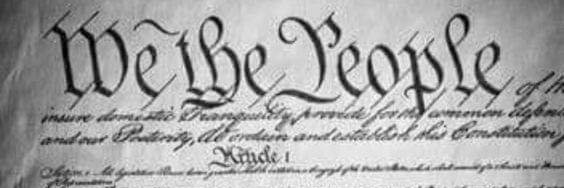 We the People of th
insure domestic Tranquility, provide for the common defenc
and our Posterity, do ordain and establish this Constitution f
Article I
Section 1. All legislative Powers herein granted shall be vested in a Congress of the United States which shall consist of a Senate and House
of Representatives